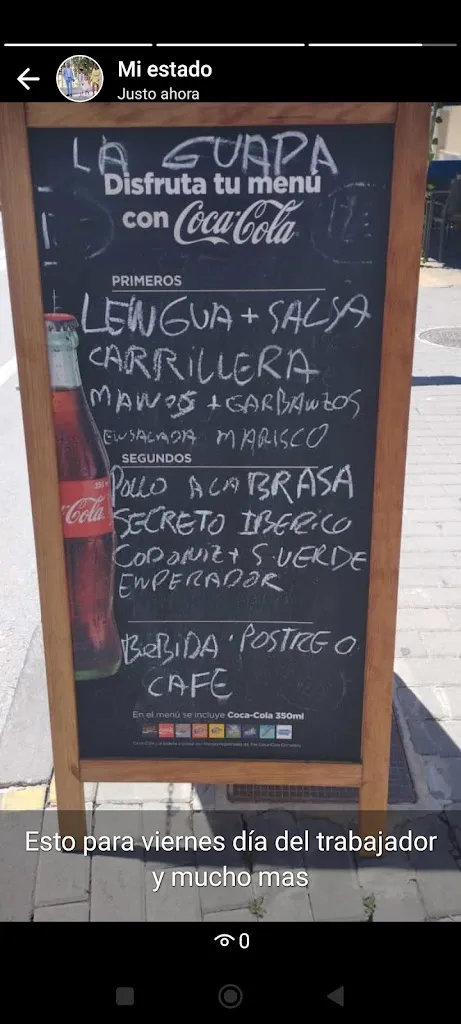 Mi estado
Justo ahora
LA GUAPA
Disfruta tu menú
con Coca-Cola
PRIMEROS
LENGUA + SALSA
CARRILLERA
MANOS + GARBANZOS
ENSALADA MARISCO
SEGUNDOS
POLLO A LA BRASA
SECRETO IBERICO
CODONIZ + S. VERDE
EMPERADOR
Coca-Cola
BEBIDA · POSTRE O
CAFE
En el menú se incluye Coca-Cola 350ml
Esto para viernes día del trabajador
y mucho mas
0